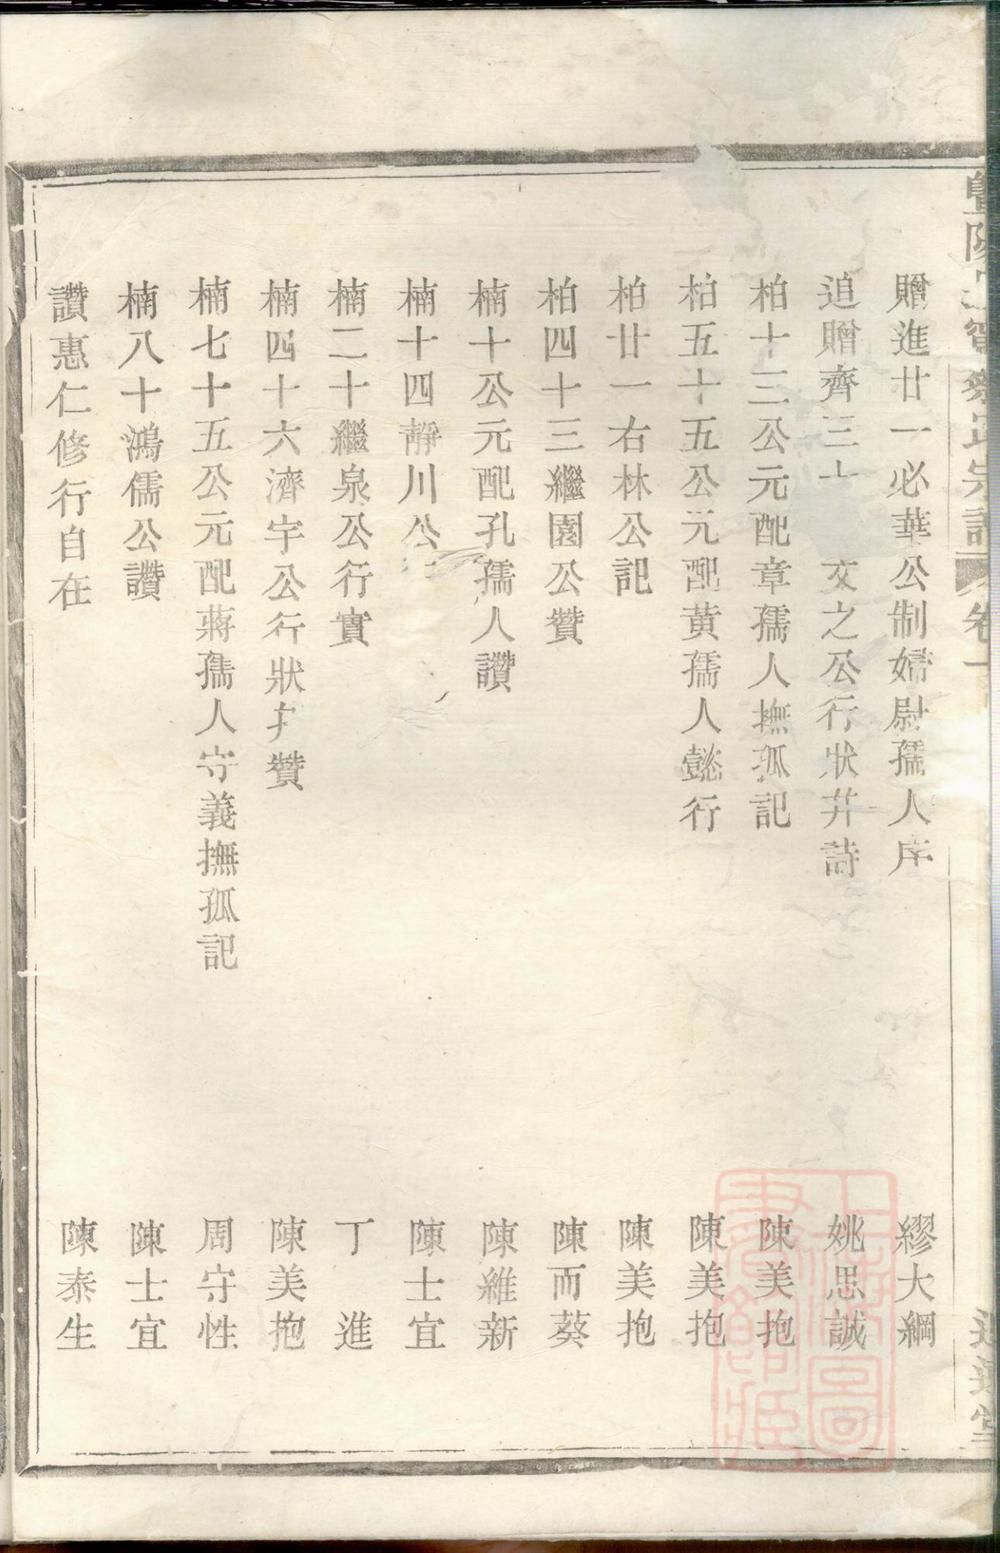 贈進廿一必華公制婦尉孺人序 繆大綱
追贈齊三十 文之公行狀并詩 姚思誠
柏十三公元配章孺人撫孤記 陳美抱
柏五十五公元配黃孺人懿行 陳美抱
柏廿一右林公記 陳美抱
柏四十三繼園公贊 陳而葵
楠十公元配孔孺人讚 陳維新
楠十四靜川公 陳士宜
楠二十繼泉公行實 丁進
楠四十六濟宇公行狀并贊 陳美抱
楠七十五公元配蔣孺人守義撫孤記 周守性
楠八十鴻儒公讚 陳士宜
讚惠仁修行自在 陳泰生
卷一
上海圖書館藏